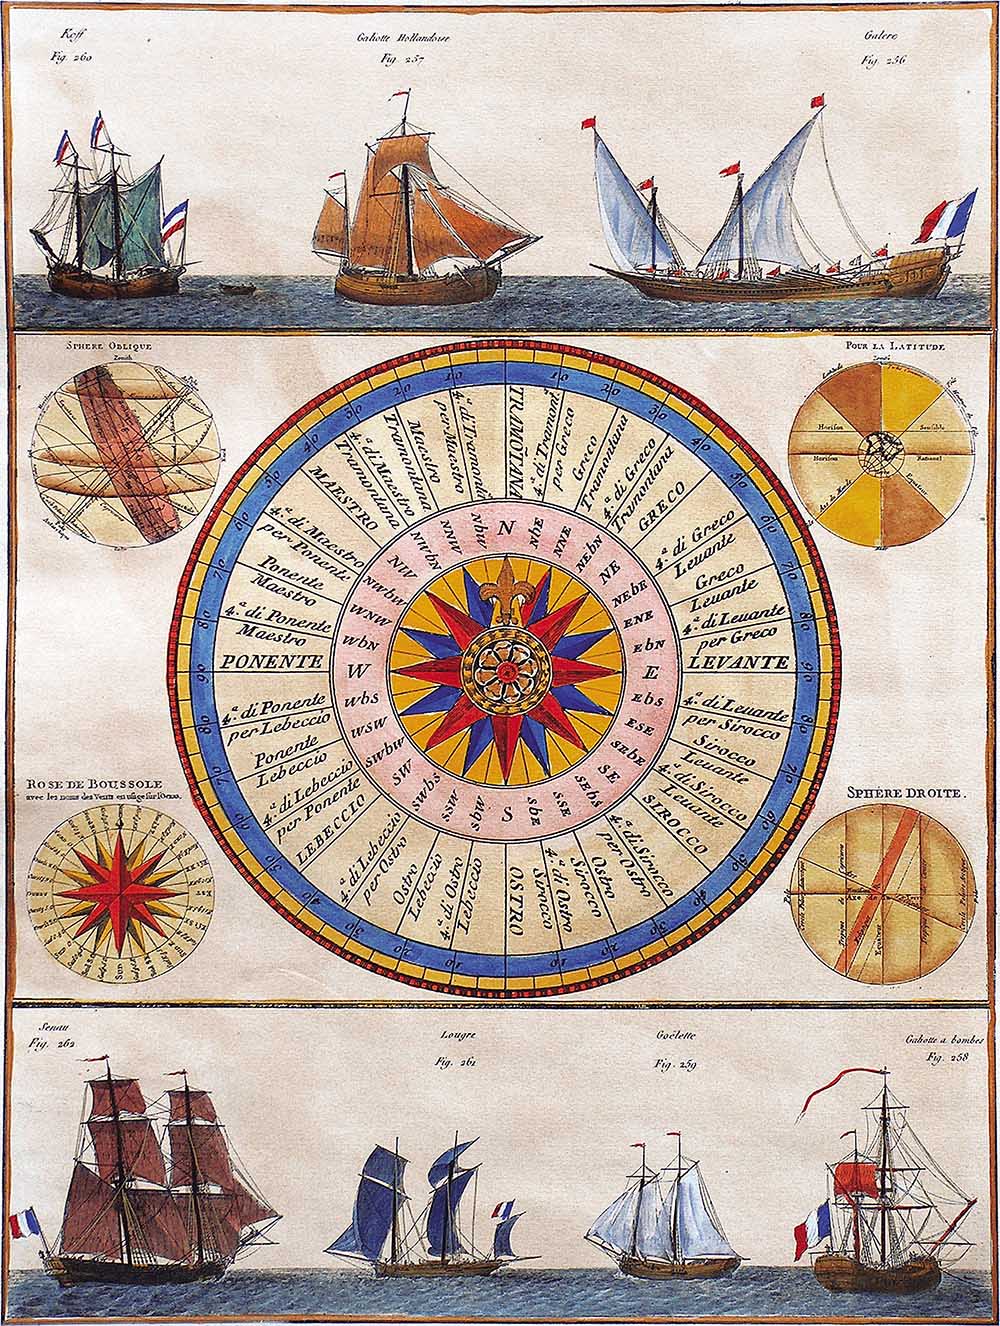 Koff
Fig. 260
Galiotte Hollandoise
Fig. 257
Galere
Fig. 256
SPHERE OBLIQUE
Zenith
POUR LA LATITUDE
Zenith
Horison
Sensible
Horison
Rationel
TRAMONTANA
4.ª di Tramont.ª
per Greco
Greco
Tramontana
4.ª di Greco
Tramontana
GRECO
4.ª di Greco
Leuante
Greco
Leuante
4.ª di Leuante
per Greco
LEVANTE
4.ª di Leuante
per Sirocco
Sirocco
Leuante
4.ª di Sirocco
Leuante
SIROCCO
4.ª di Sirocco
per Ostro
Ostro
Sirocco
4.ª di Ostro
Sirocco
OSTRO
4.ª di Ostro
Lebeccio
Ostro
Lebeccio
4.ª di Lebeccio
per Ostro
LEBECCIO
4.ª di Lebeccio
per Ponente
Ponente
Lebeccio
4.ª di Ponente
per Lebeccio
PONENTE
4.ª di Ponente
Maestro
Ponente
Maestro
4.ª di Maestro
per Ponente
MAESTRO
4.ª di Maestro
Tramontana
Maestro
Tramontana
4.ª di Tramontā
per Maestro
N
NbE
NNE
NEbN
NE
NEbE
ENE
EbN
E
EbS
ESE
SEbE
SE
SEbS
SSE
SbE
S
SbW
SSW
SWbS
SW
SWbW
WSW
WbS
W
WbN
WNW
NWbW
NW
NWbN
NNW
NbW
10
20
30
40
50
60
70
80
90
80
70
60
50
40
30
20
10
10
20
30
40
50
60
70
80
90
80
70
60
50
40
30
20
10
ROSE DE BOUSSOLE
avec les noms des Vents en usage sur l'Océan.
Sud
SPHÈRE DROITE.
Axe de la
Equateur
Senau
Fig. 262
Lougre
Fig. 261
Goëlette
Fig. 259
Galiotte a bombes
Fig. 258